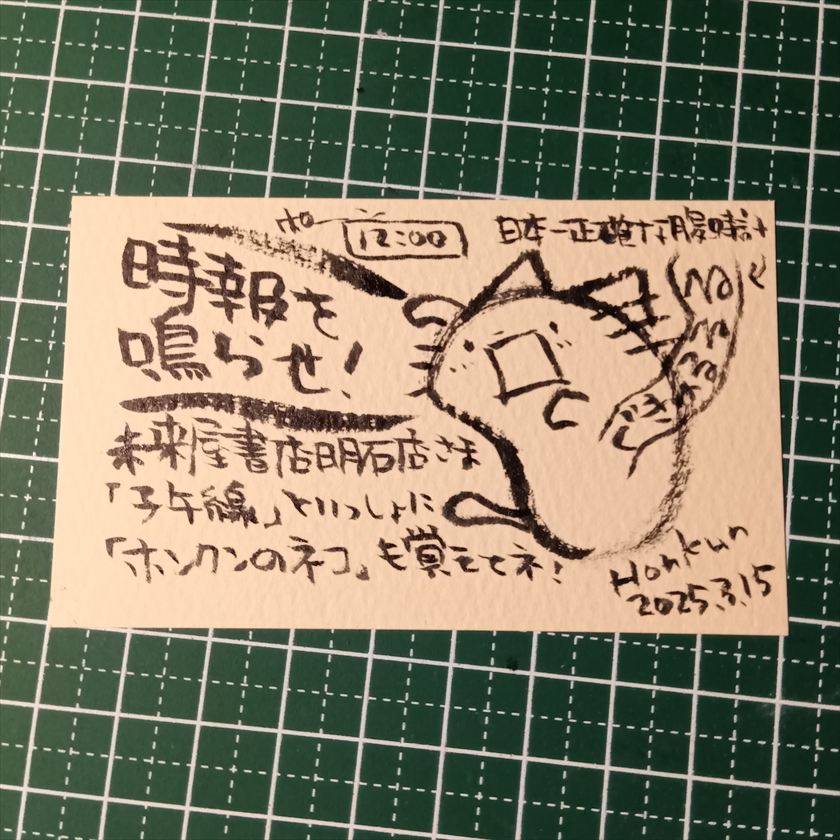 ポーン
12:00
日本一正確な腹時計
時報を
鳴らせ！
未来屋書店明石店さま
「子午線」といっしょに
「ホンクンのネコ」も覚えてネ！
Honkun
2025.3.15